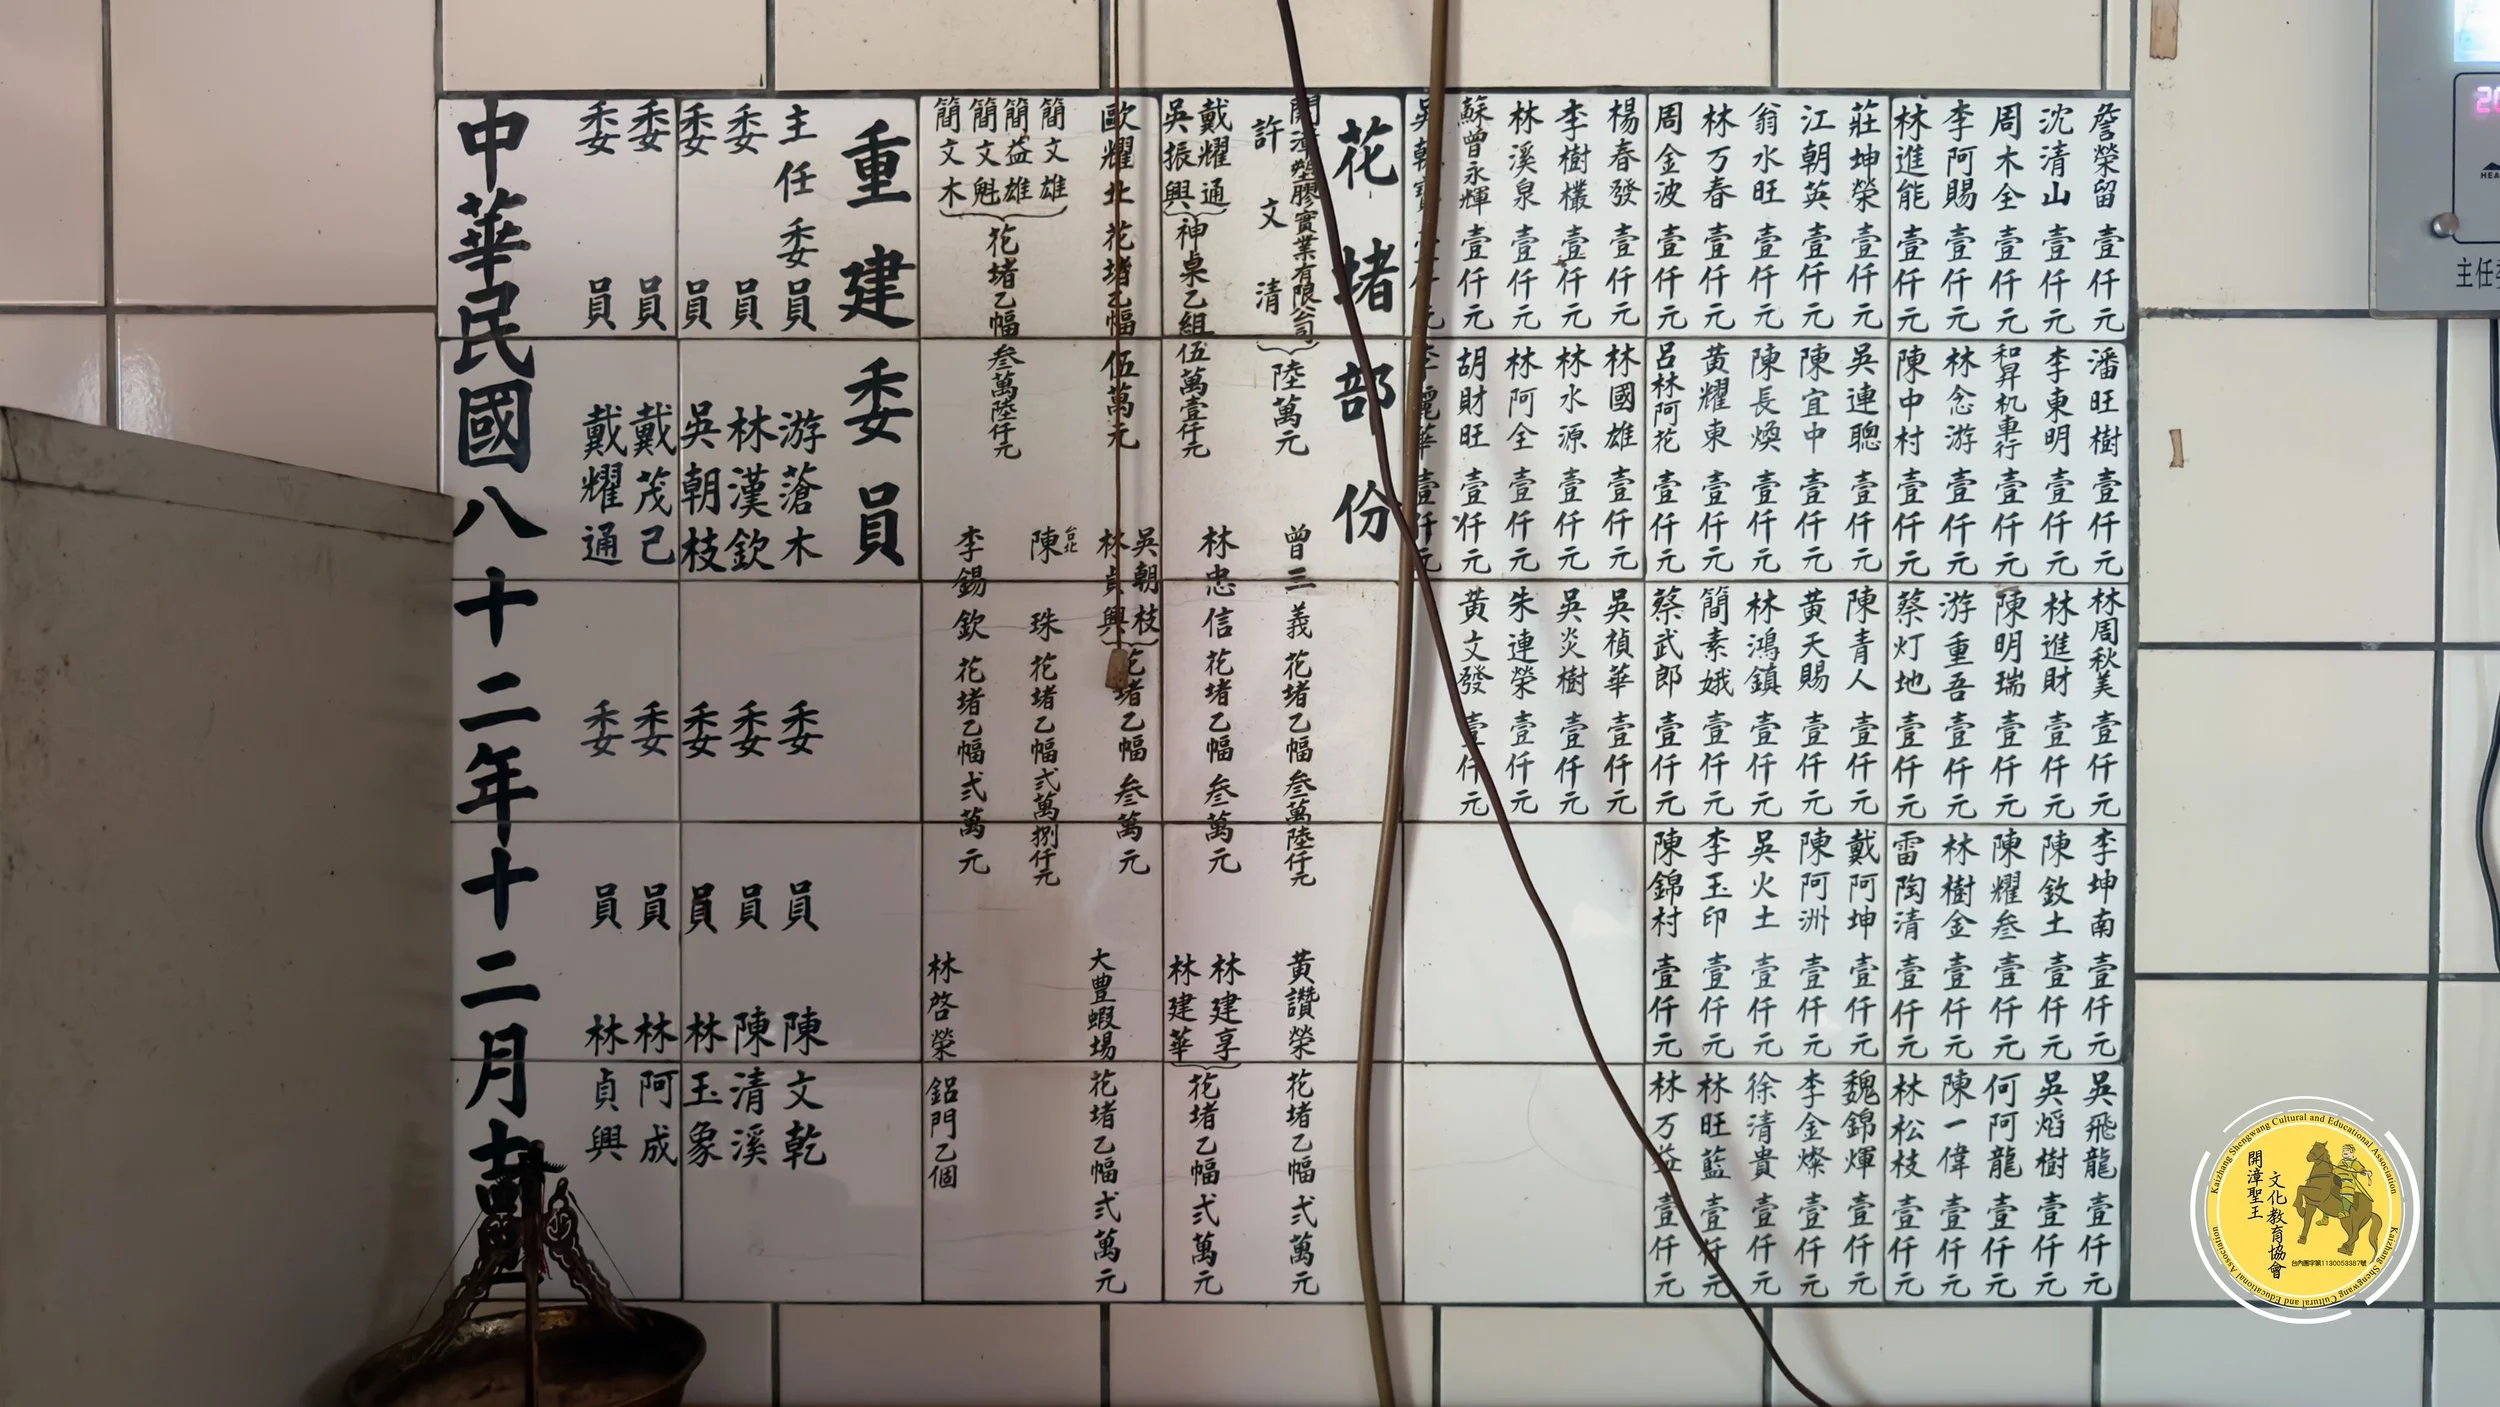 詹榮留 壹仟元
沈清山 壹仟元
周木全 壹仟元
李阿賜 壹仟元
林進能 壹仟元
莊坤榮 壹仟元
江朝英 壹仟元
翁水旺 壹仟元
林万春 壹仟元
周金波 壹仟元
楊春發 壹仟元
李樹欉 壹仟元
林溪泉 壹仟元
蘇曾永輝 壹仟元
潘旺樹 壹仟元
李東明 壹仟元
和昇机車行 壹仟元
林念游 壹仟元
陳中村 壹仟元
吳連聰 壹仟元
陳宜中 壹仟元
陳長煥 壹仟元
黃耀東 壹仟元
呂林阿花 壹仟元
林國雄 壹仟元
林水源 壹仟元
林阿全 壹仟元
胡財旺 壹仟元
李麗華 壹仟元
林周秋美 壹仟元
林進財 壹仟元
陳明瑞 壹仟元
游重吾 壹仟元
蔡灯地 壹仟元
陳青人 壹仟元
黃天賜 壹仟元
林鴻鎮 壹仟元
簡素娥 壹仟元
蔡武郎 壹仟元
吳楨華 壹仟元
吳炎樹 壹仟元
朱連榮 壹仟元
黃文發 壹仟元
李坤南 壹仟元
陳敘土 壹仟元
陳耀叁 壹仟元
林樹金 壹仟元
雷陶清 壹仟元
戴阿坤 壹仟元
陳阿洲 壹仟元
吳火土 壹仟元
李玉印 壹仟元
陳錦村 壹仟元
吳飛龍 壹仟元
吳焰樹 壹仟元
何阿龍 壹仟元
陳一偉 壹仟元
林松枝 壹仟元
魏錦煇 壹仟元
李金燦 壹仟元
徐清貴 壹仟元
林旺藍 壹仟元
林万益 壹仟元
花堵部份
開漳塑膠實業有限公司
許文清
陸萬元
戴耀通
吳振興
神桌乙組 伍萬壹仟元
歐耀北 花堵乙幅 伍萬元
簡文雄
簡益雄
簡文魁
簡文木
花堵乙幅 叁萬陸仟元
曾三義 花堵乙幅 叁萬陸仟元
林忠信 花堵乙幅 叁萬元
吳朝枝
林貞興
花堵乙幅 叁萬元
台北
陳珠 花堵乙幅 弍萬捌仟元
李錫欽 花堵乙幅 弍萬元
黃讚榮 花堵乙幅 弍萬元
林建享
林建華
花堵乙幅 弍萬元
大豐蝦場 花堵乙幅 弍萬元
林啓榮 鋁門乙個
重建委員
主任委員 游蒼木
委員 林漢欽
委員 吳朝枝
委員 戴茂己
委員 戴耀通
委員 陳文乾
委員 陳清溪
委員 林玉象
委員 林阿成
委員 林貞興
中華民國八十二年十二月
主任
HEA
開漳聖王
文化教育協會
台內團字第1130053387號
Kaizhang Shengwang Cultural and Educational Association
Kaizhang Shengwang Cultural and Educational Association